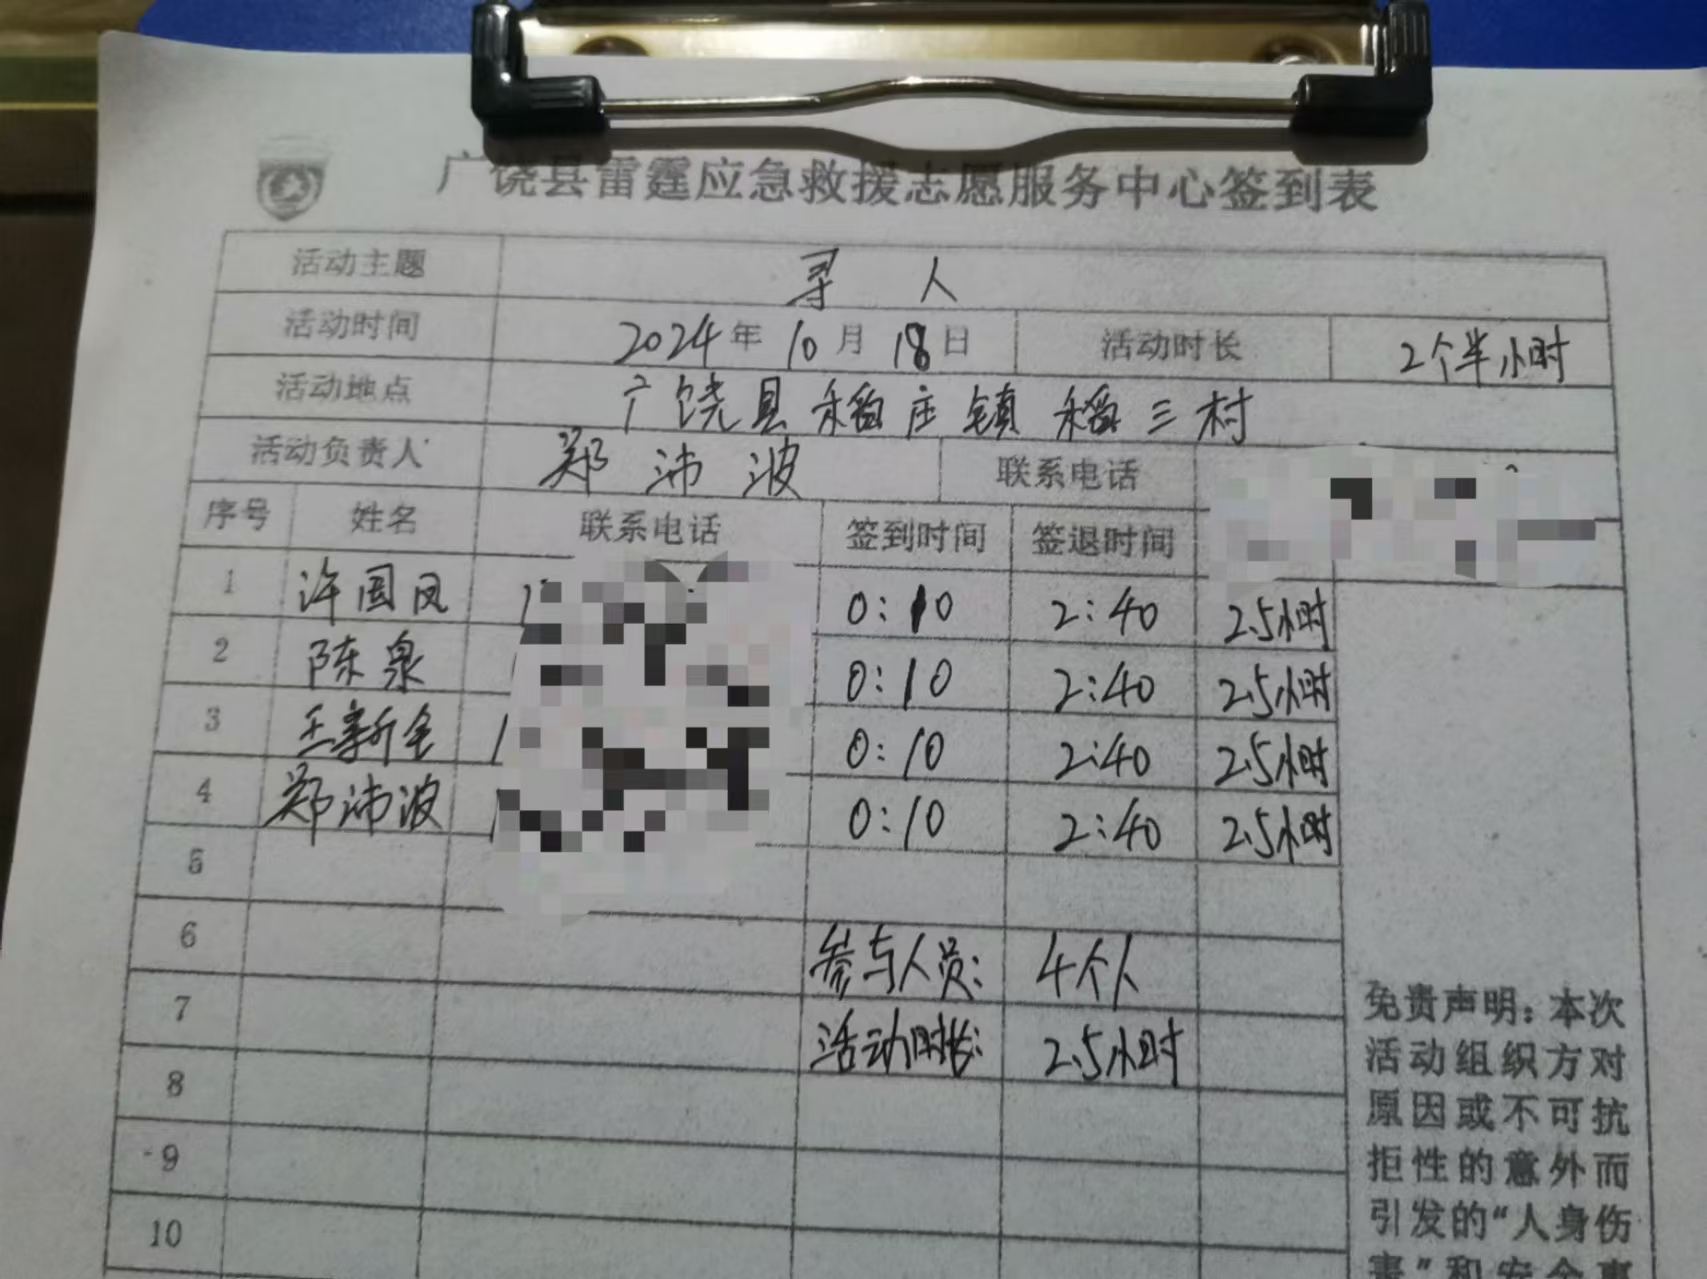 广饶县雷霆应急救援志愿服务中心签到表
活动主题 寻人
活动时间 2024年10月18日 活动时长 2个半小时
活动地点 广饶县稻庄镇稻三村
活动负责人 郑沛波 联系电话
序号 姓名 联系电话 签到时间 签退时间
1 许国凤 0:10 2:40 2.5小时
2 陈泉 0:10 2:40 2.5小时
3 王新全 0:10 2:40 2.5小时
4 郑沛波 0:10 2:40 2.5小时
5
6 参与人员: 4个人
7 活动时长: 2.5小时
8
9
10
免责声明:本次
活动组织方对
原因或不可抗
拒性的意外而
引发的“人身伤
害”和安全事